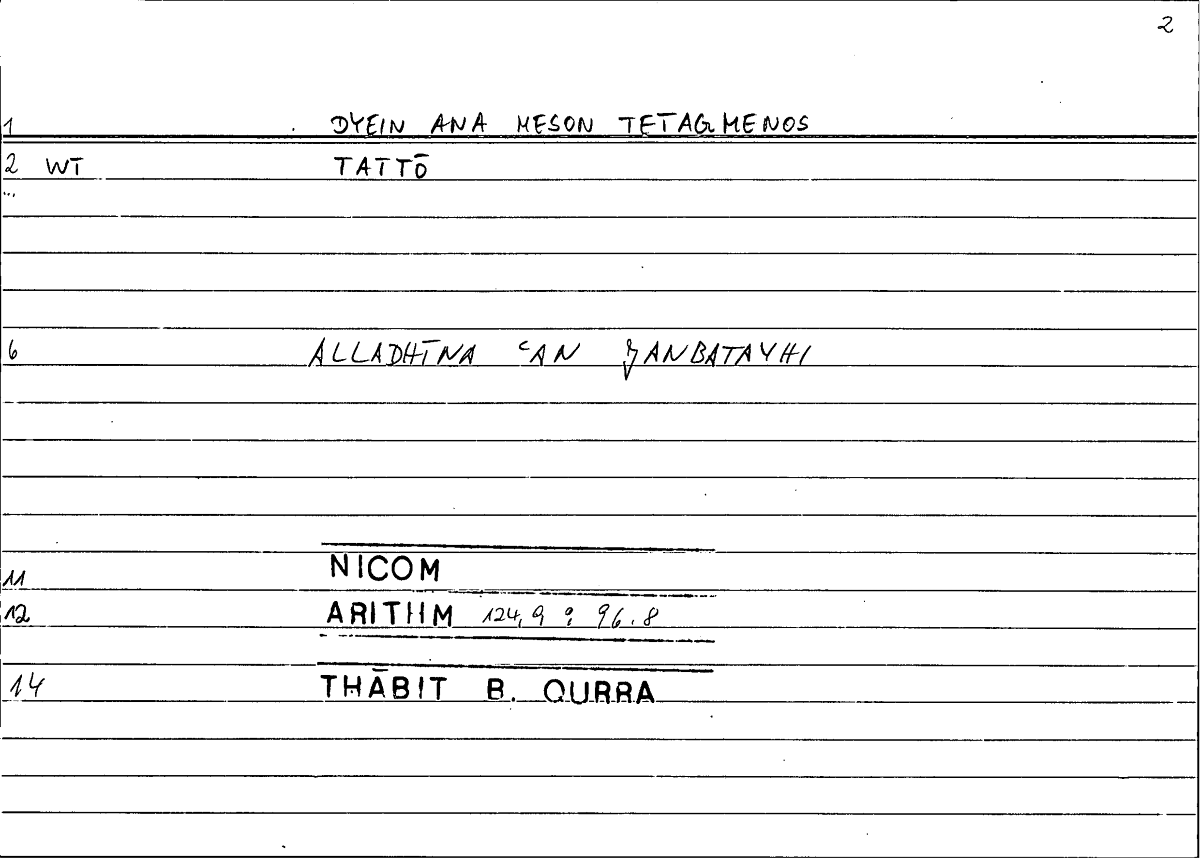 2
1 DYEIN ANA MESON TETAGMENOS
2 WT TATTŌ
...
6 ALLADHĪNA ʿAN ǦANBATAYHI
11 NICOM
12 ARITHM 124,9 : 96.8
14 THĀBIT B. QURRA